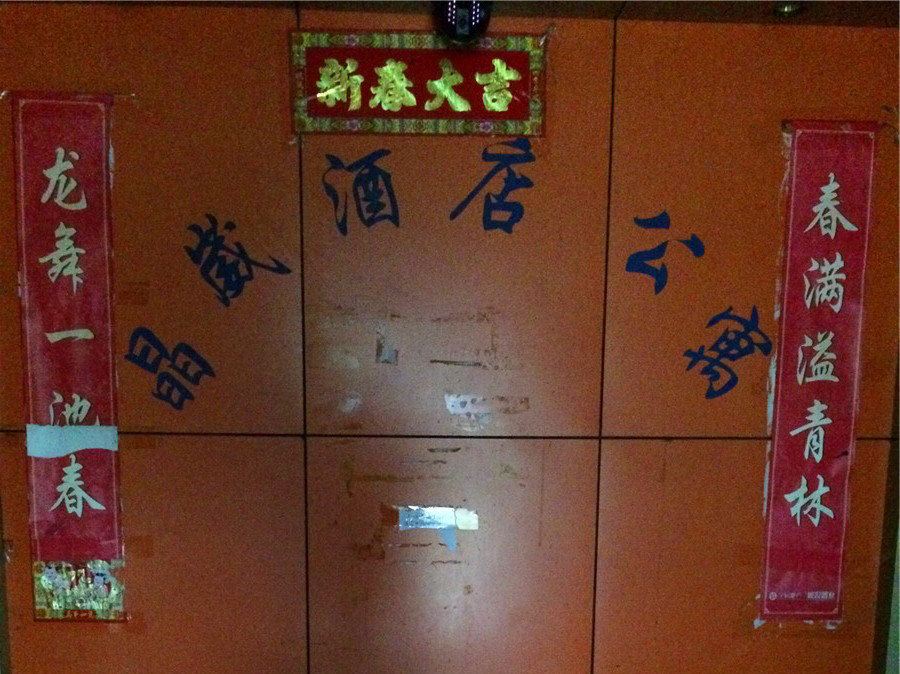 新春大吉
龙舞一池春
晶崴酒店公寓
春满溢青林